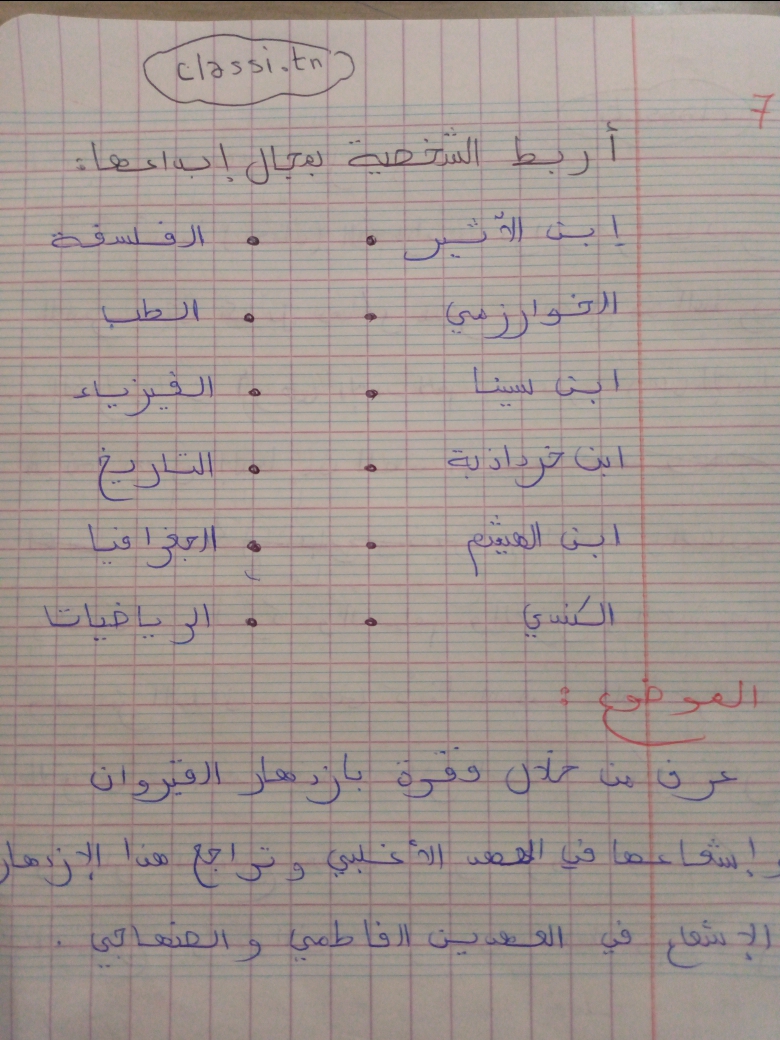 classi.tn
7
أربط الشخصية بمجال إبداعها:
إبن الأثير • • الفلسفة
الخوارزمي • • الطب
ابن سينا • • الفيزياء
ابن خرداذبة • • التاريخ
ابن الهيثم • • الجغرافيا
الكندي • • الرياضيات
الموضوع :
عرف من خلال فقرة بازدهار القيروان
و إشعاعها في العهد الأغلبي و تراجع هذا الإزدهار
الإشعاع في العهدين الفاطمي و الصنهاجي .